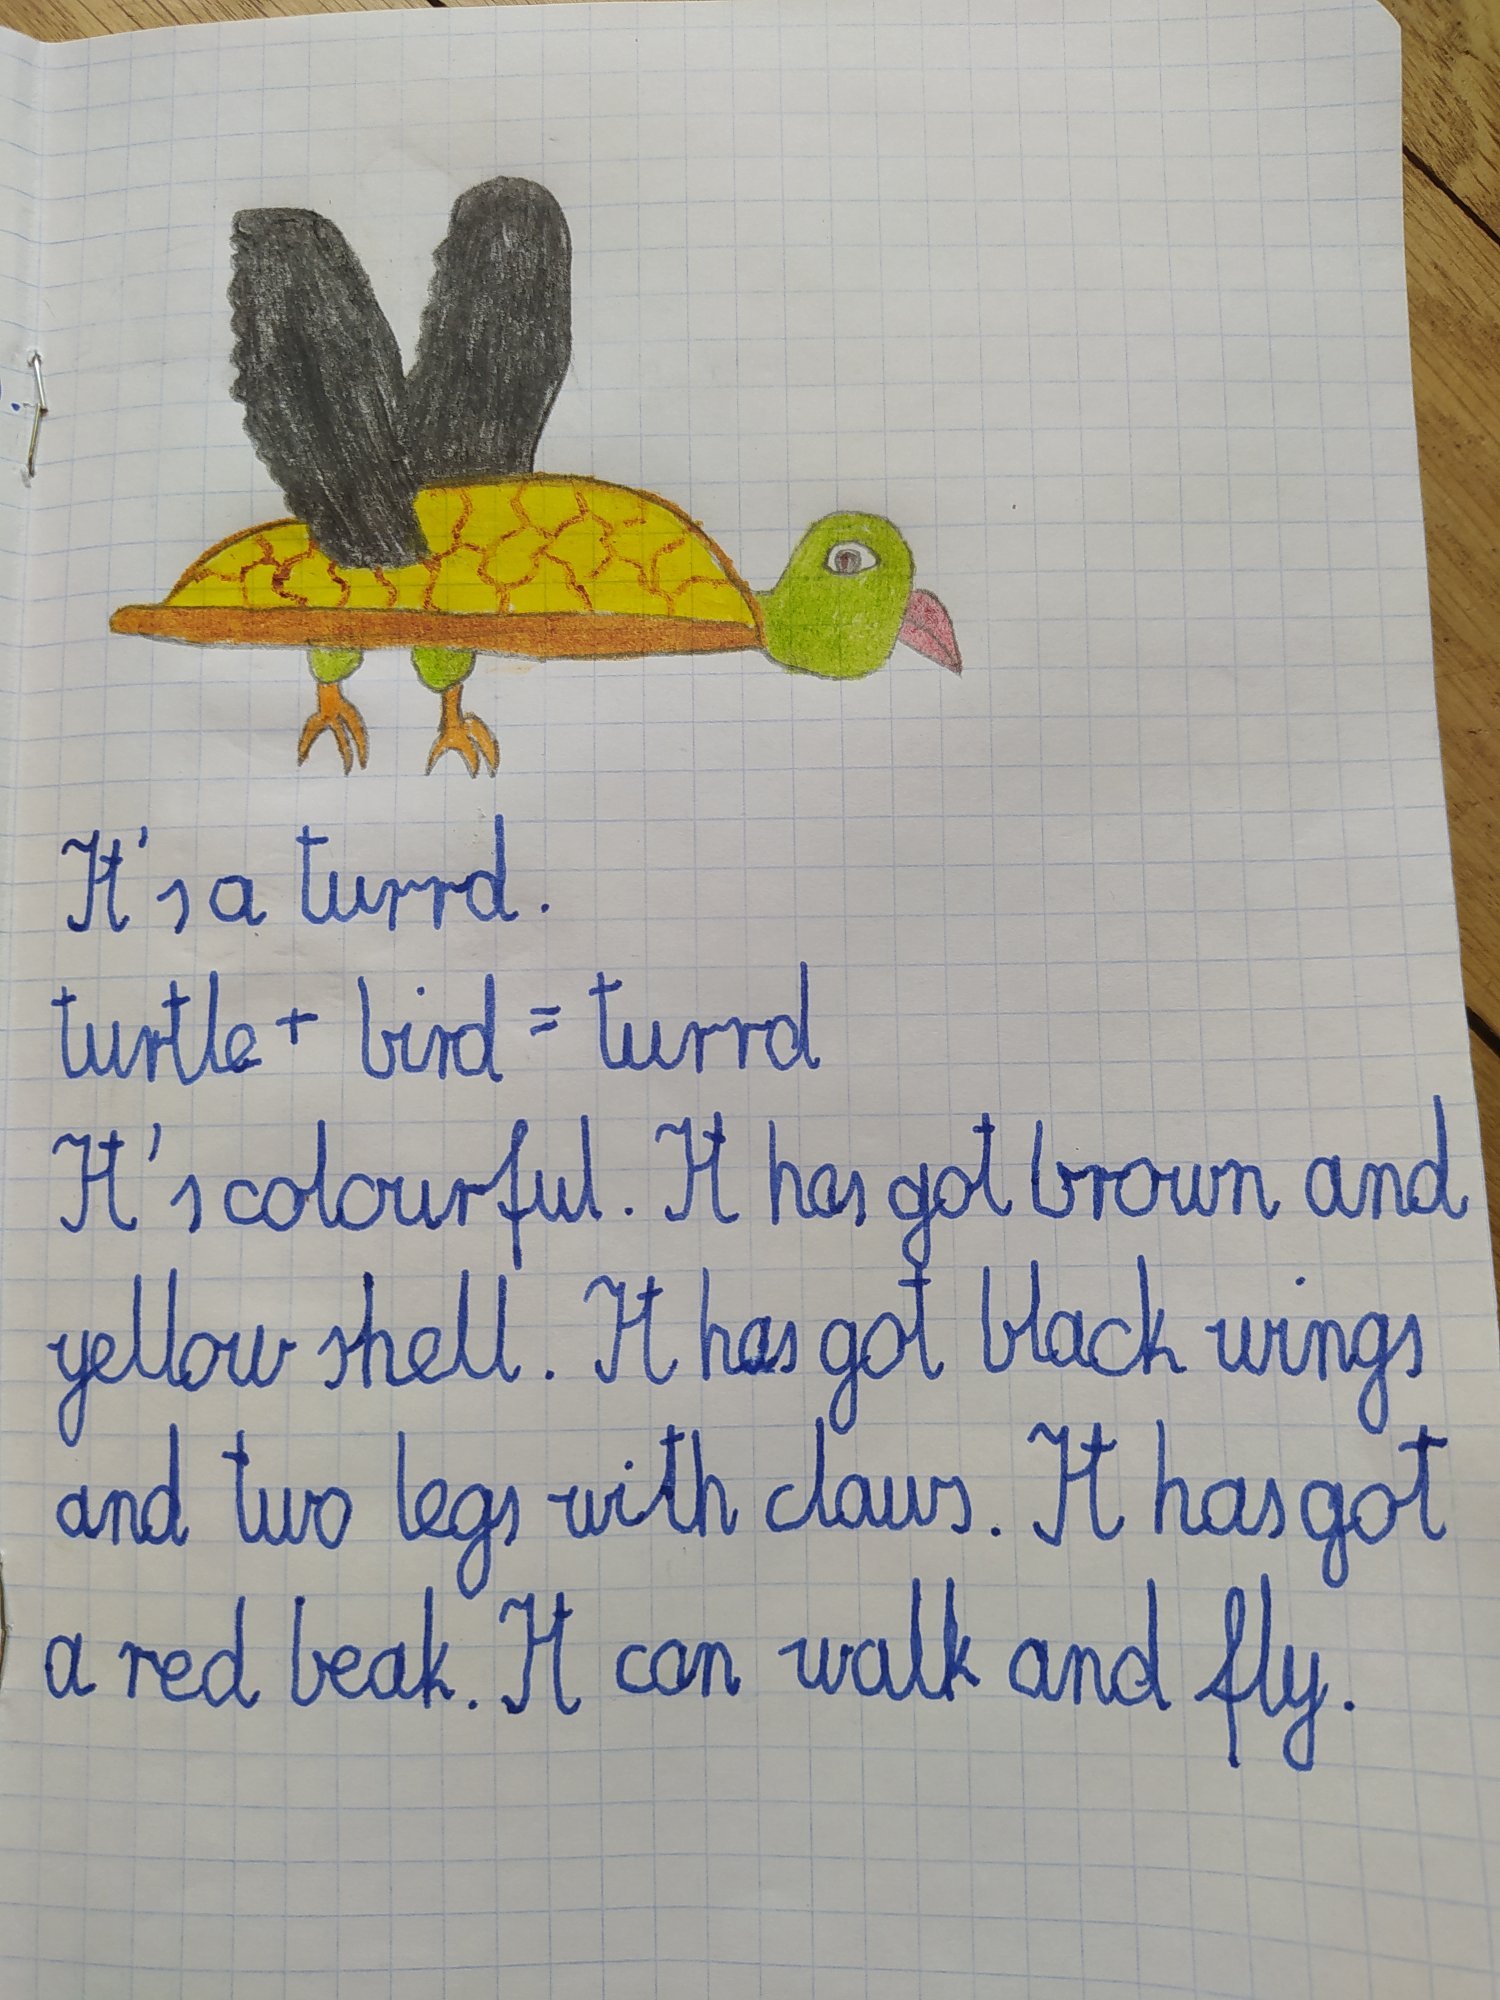 It's a turrd.
turtle + bird = turrd
It's colourful. It has got brown and
yellow shell. It has got black wings
and two legs with claws. It has got
a red beak. It can walk and fly.